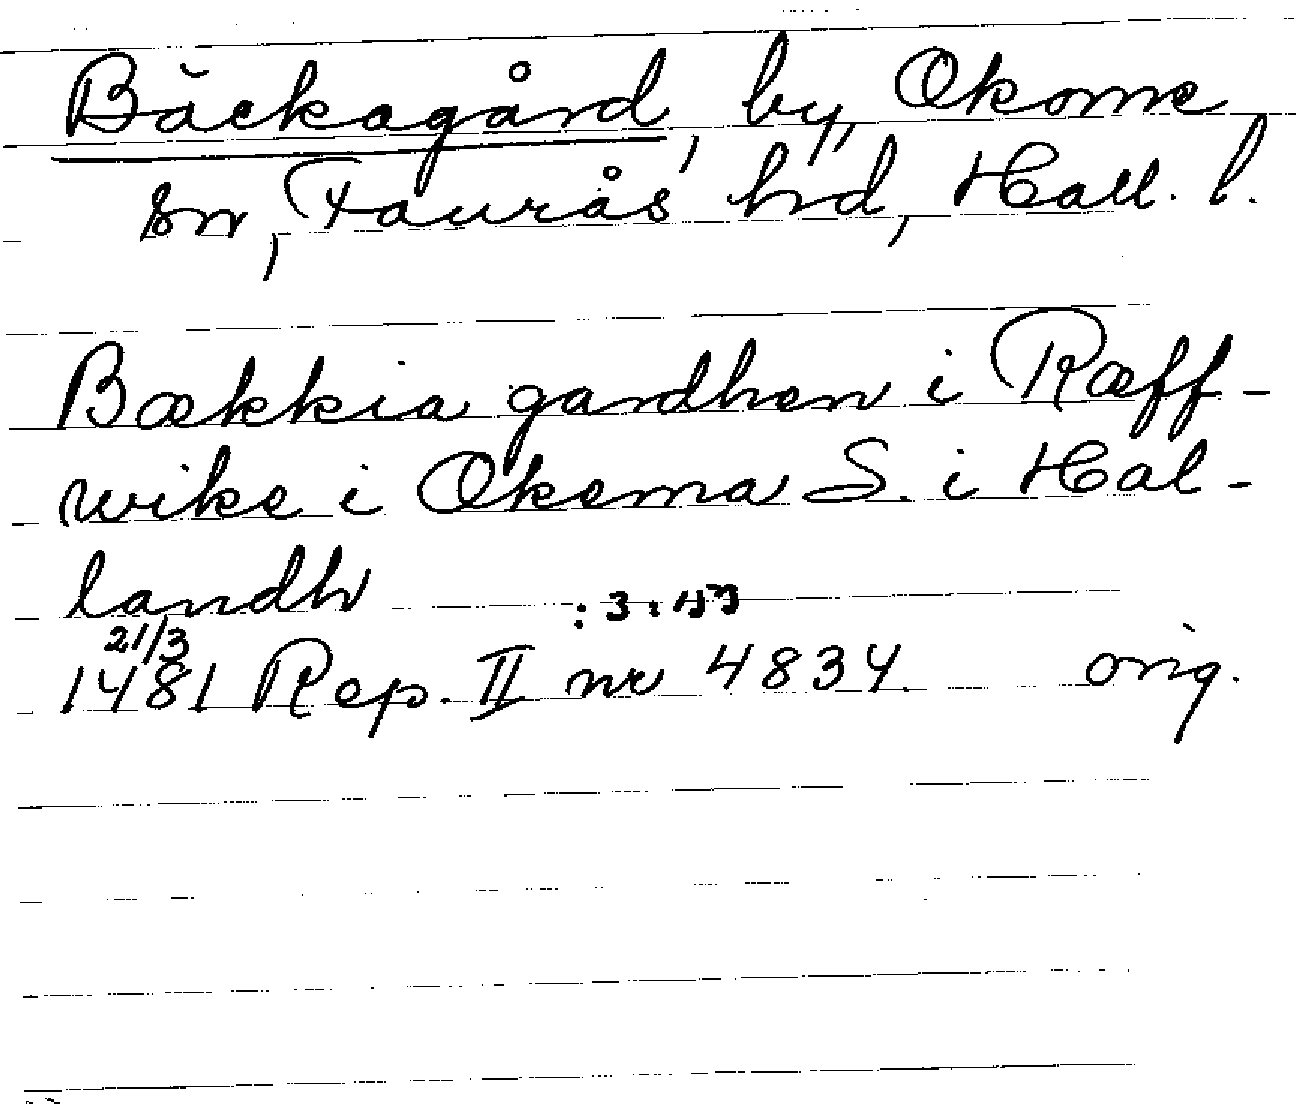 Bäckagård, by, Okome
sn, Faurås hd, Hall. l.
Bækkia gardhen i Ræff-
wike i Okema S. i Hal-
landh
21/3
1481 Rep. II nr 4834. orig.